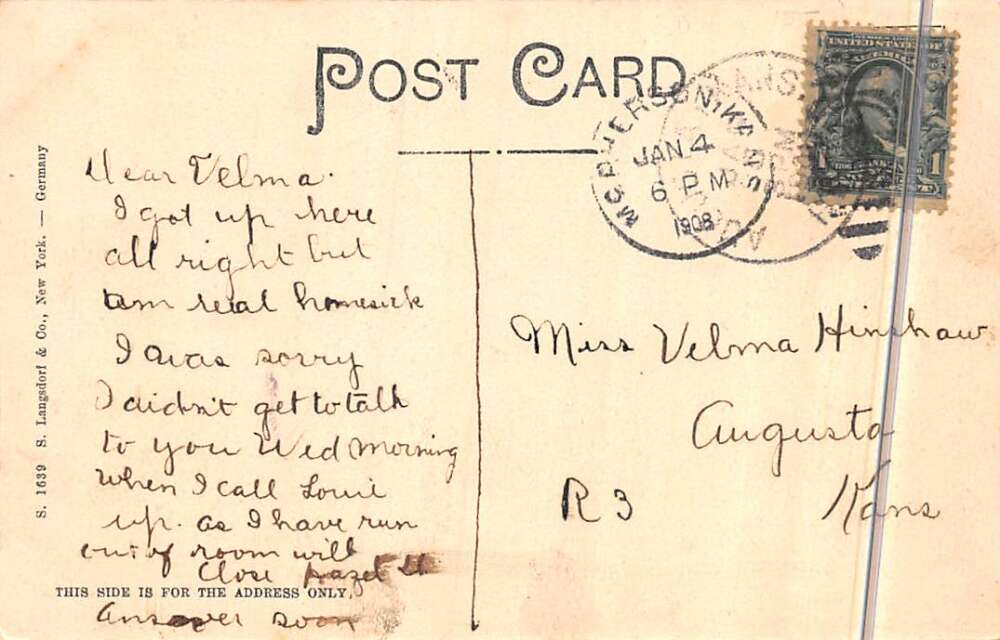 POST CARD
MCPHERSON, KANS.
JAN 4
6 P M
1908
UNITED STATES OF AMERICA
1 1
S. 1639 S. Langsdorf & Co., New York. — Germany
Dear Velma.
I got up here
all right but
am real homesick
I was sorry
I didn't get to talk
to you Wed morning
when I call Louie
up. as I have run
out of room will
Close Hazel H
THIS SIDE IS FOR THE ADDRESS ONLY.
Answer soon
Miss Velma Hinshaw
Augusta
R 3 Kans